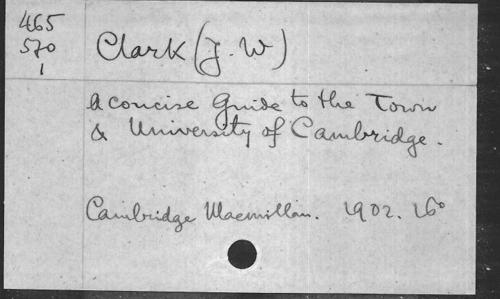 465
570
1
Clark (J. W)
A concise Guide to the Town
& University of Cambridge.
Cambridge Macmillan. 1902. 16°